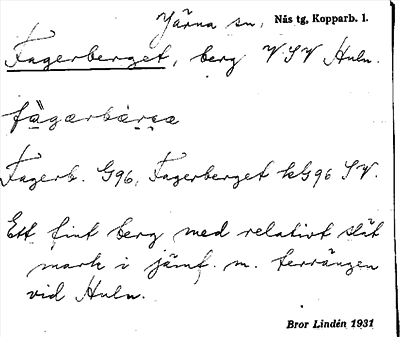 Järna sn, Nås tg, Kopparb. l.
Fagerberget, berg V.S.V Huln.
fägærbäræ̨æ
Fagerb. G96, Fagerberget kG96 SV.
Ett fint berg med relativt slät
mark i jämf. m. terrängen
vid Huln.
Bror Lindén 1931